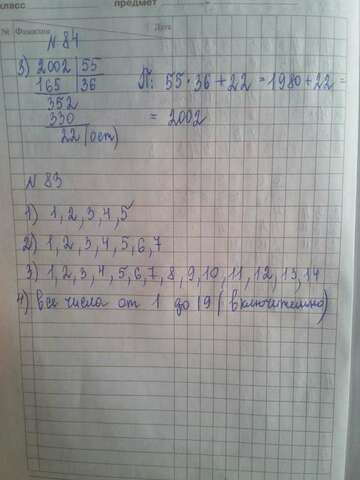 класс предмет
№ Фамилия Дата
№ 84
3) 2002 | 55
165 | 36 П: 55·36+22=1980+22=
352
330 = 2002
22 (ост)
№ 83
1) 1,2,3,4,5
2) 1,2,3,4,5,6,7
3) 1,2,3,4,5,6,7,8,9,10,11,12,13,14
4) все числа от 1 до 19 (включительно)